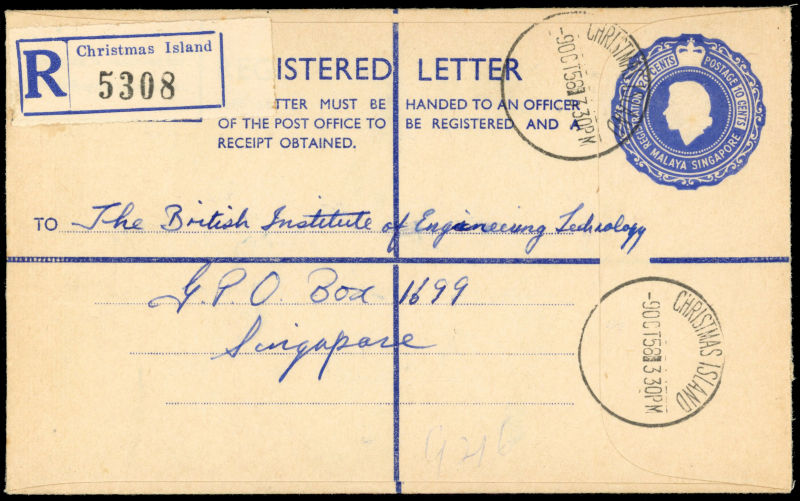 R Christmas Island
5308
ISTERED LETTER
TTER MUST BE HANDED TO AN OFFICER
OF THE POST OFFICE TO BE REGISTERED AND A
RECEIPT OBTAINED.
REGISTRATION CENTS POSTAGE 10 CENTS
MALAYA SINGAPORE
CHRISTMAS
-9OCT58 3 30PM
TO The British Institute of Engineering Technology
G.P.O. Box 1699
Singapore
CHRISTMAS ISLAND
-9OCT58 3 30PM